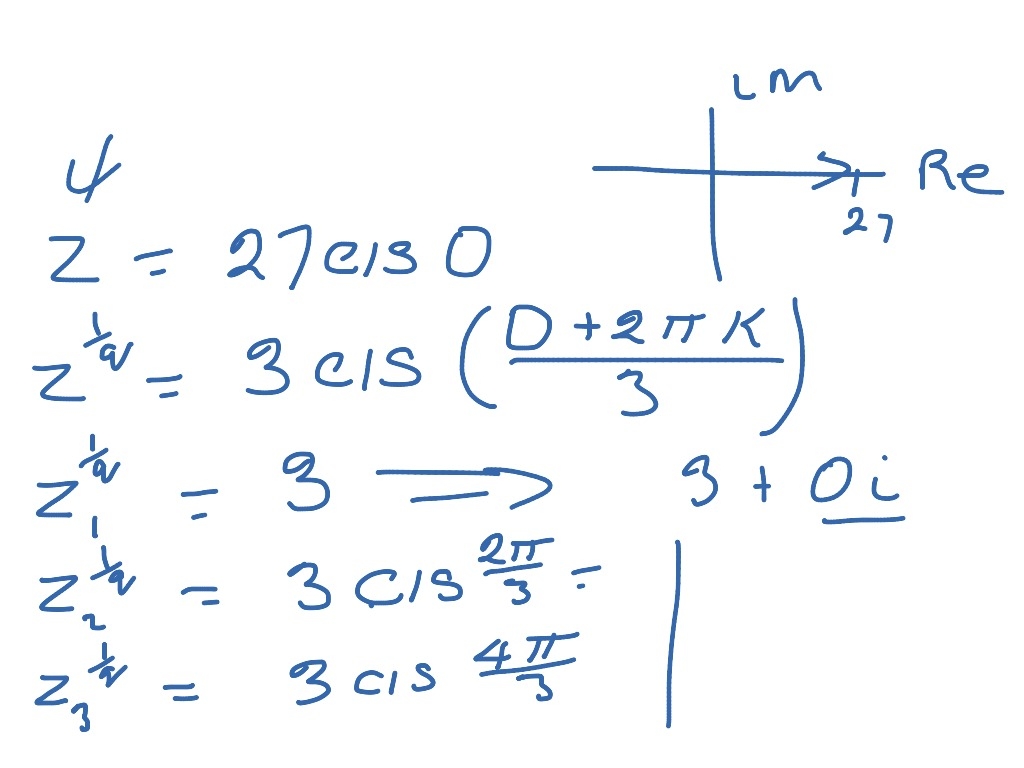 Im
ψ
Re
27
Z = 27 cis 0
z^{1/q} = 3 cis ((0 + 2πK)/3)
z_1^{1/q} = 3 ⟹ 3 + 0i
z_2^{1/q} = 3 cis 2π/3 =
z_3^{1/q} = 3 cis 4π/3